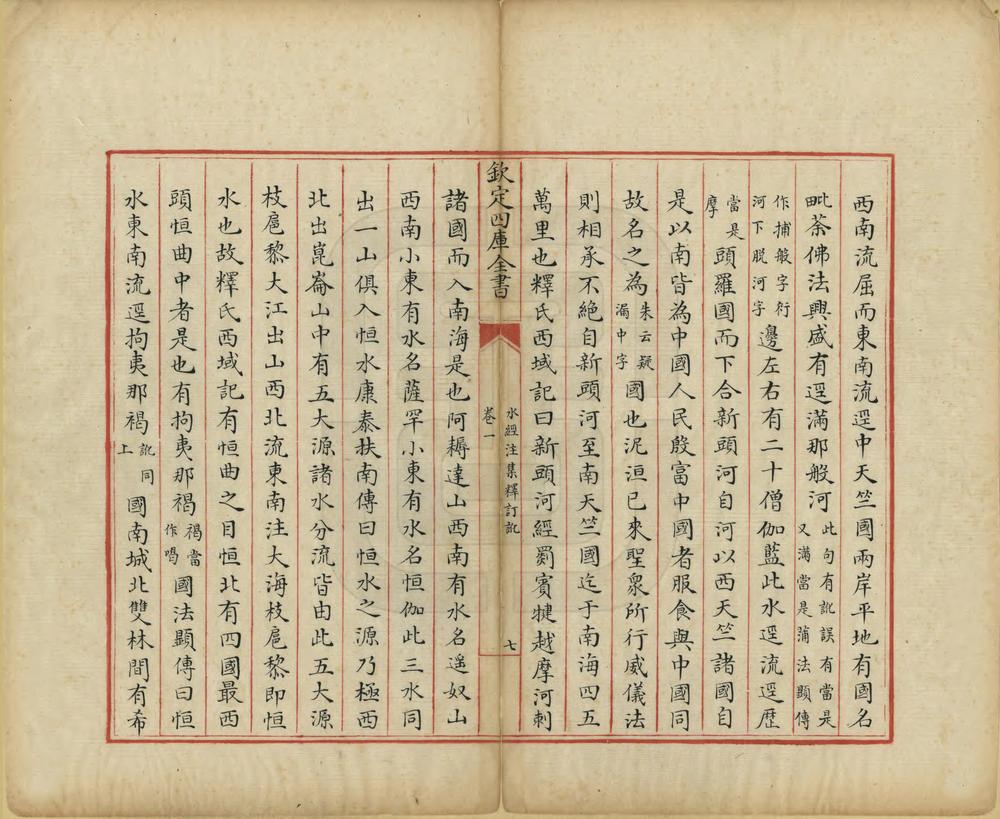 西南流屈而東南流逕中天竺國兩岸平地有國名
毗荼佛法興盛有逕滿那般河此句有訛誤有當是又滿當是蒲法顯傳
作捕般字衍河下脫河字邊左右有二十僧伽藍此水逕流逕歷
當是摩頭羅國而下合新頭河自河以西天竺諸國自
是以南皆為中國人民殷富中國者服食與中國同
故名之為朱云疑漏中字國也泥洹已來聖衆所行威儀法
則相承不絶自新頭河至南天竺國迄于南海四五
萬里也釋氏西域記曰新頭河經罽賓犍越摩河剌
欽定四庫全書
水經注集釋訂訛
卷一
七
諸國而入南海是也阿耨達山西南有水名遥奴山
西南小東有水名薩罕小東有水名恒伽此三水同
出一山俱入恒水康泰扶南傳曰恒水之源乃極西
北出崑崙山中有五大源諸水分流皆由此五大源
枝扈黎大江出山西北流東南注大海枝扈黎即恒
水也故釋氏西域記有恒曲之目恒北有四國最西
頭恒曲中者是也有拘夷那褐褐當作喝國法顯傳曰恒
水東南流逕拘夷那褐訛同上國南城北雙林間有希